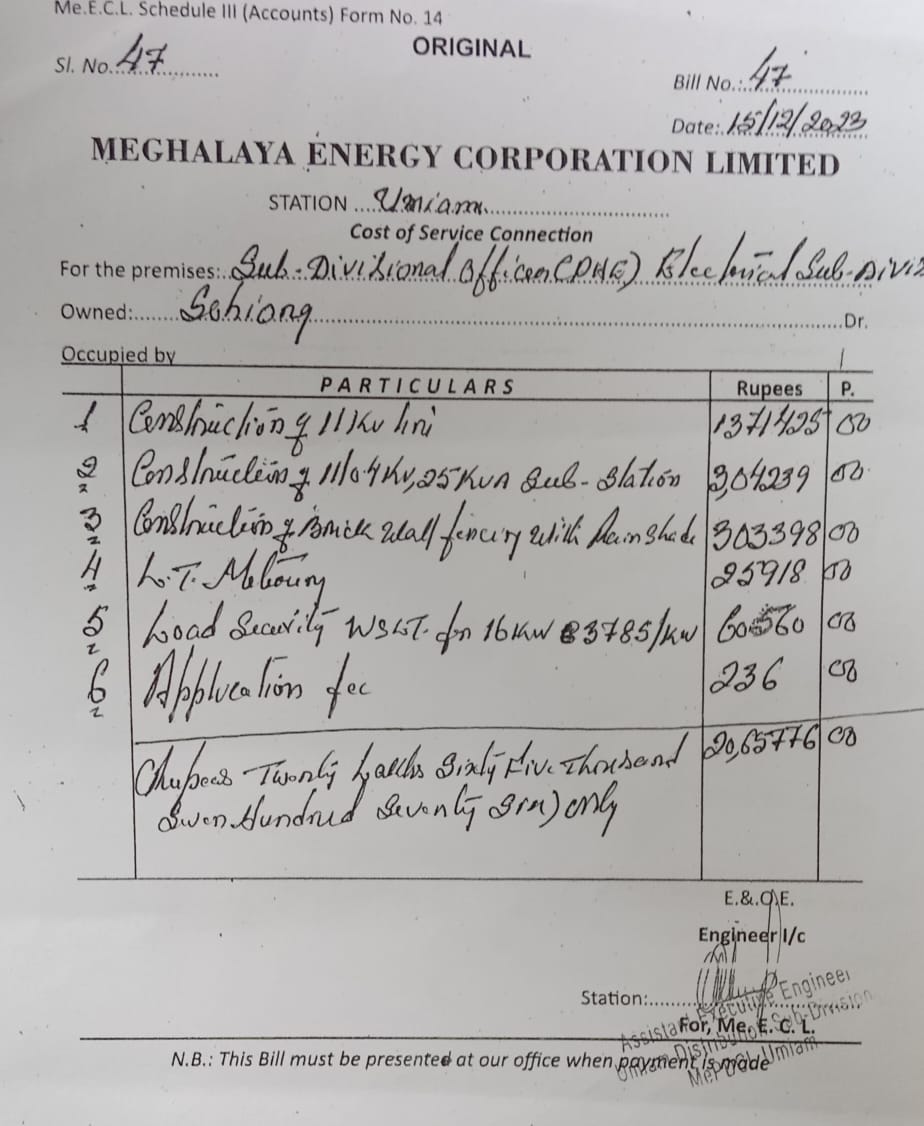 Me.E.C.L. Schedule III (Accounts) Form No. 14
ORIGINAL
Sl. No. 47
Bill No.: 47
Date: 15/12/2023
MEGHALAYA ENERGY CORPORATION LIMITED
STATION Umiam
Cost of Service Connection
For the premises: Sub-Divisional Officer (PHE) Electrical Sub-Divis
Owned: Sohiong Dr.
Occupied by
PARTICULARS Rupees P.
1 Construction of 11 KV line 1371425 00
2 Construction of 11/0.4KV, 25 KVA Sub-Station 3,04239 00
3 Construction of Brick Wall fencing with Rain Shade 303398 00
4 L.T. Metering 25918 00
5 Load Security for 16 KW @ 3785/KW 60560 00
6 Application fee 236 00
20,65776 00
(Rupees Twenty Lakhs Sixty Five Thousand
Seven Hundred Seventy Six) only
E.&.O.E.
Engineer I/c
Station:
Assistant Executive Engineer
For, Me. E. C. L.
Distribution Sub-Division
MePDCL Umiam
N.B.: This Bill must be presented at our office when payment is made